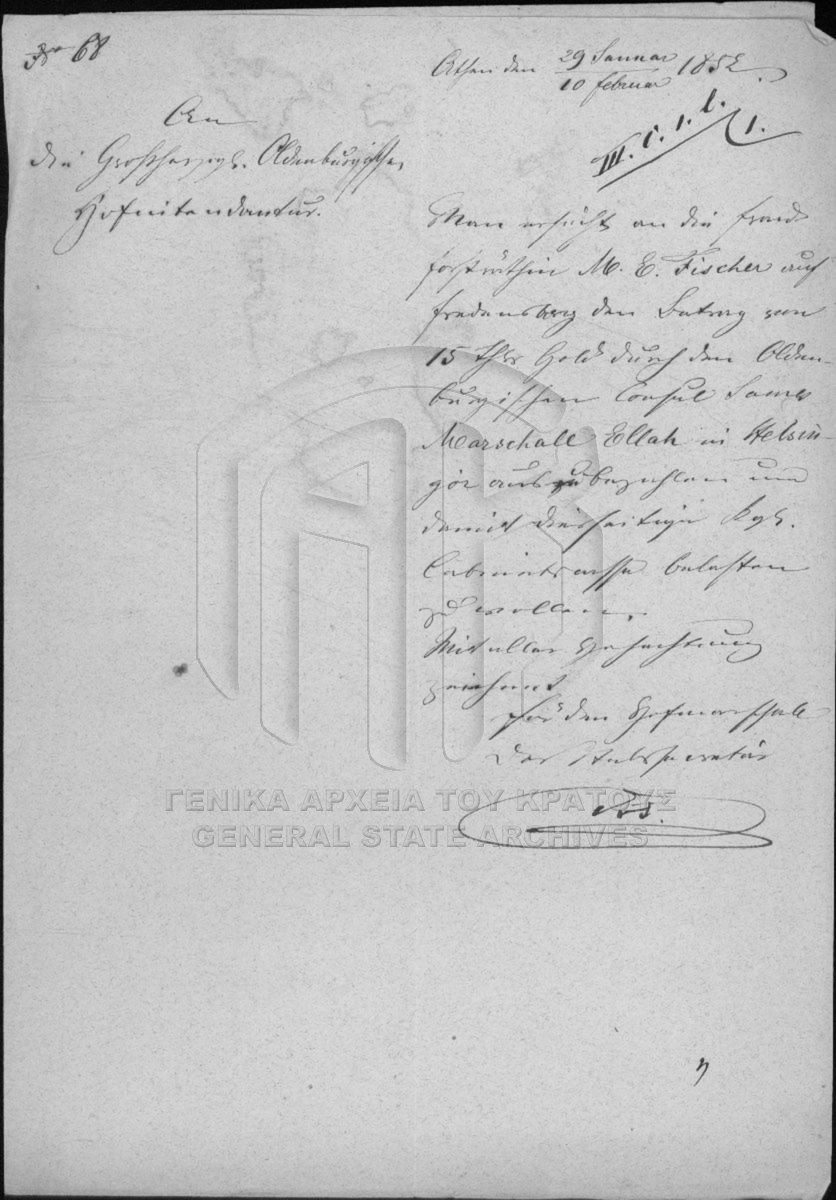 No 68
Athen den 29 Januar / 10 Februar 1852.
III. C. 1. b. 1.
An
die Großherzogl. Oldenburgische
Hofintendantur.
Man ersucht an die Frau
Forsträthin M. E. Fischer auf
Fredensborg den Betrag von
15 Thlr Gold durch den Olden-
burgischen Consul James
Marschall Ellah in Helsin-
gör auszubezahlen und
damit diesseitige Kgl.
Cabinetscasse belasten
zu wollen.
Mit aller Hochachtung
zeichnet
Für den Hofmarschall
Der Stabssecretär
ΓΕΝΙΚΑ ΑΡΧΕΙΑ ΤΟΥ ΚΡΑΤΟΥΣ
GENERAL STATE ARCHIVES